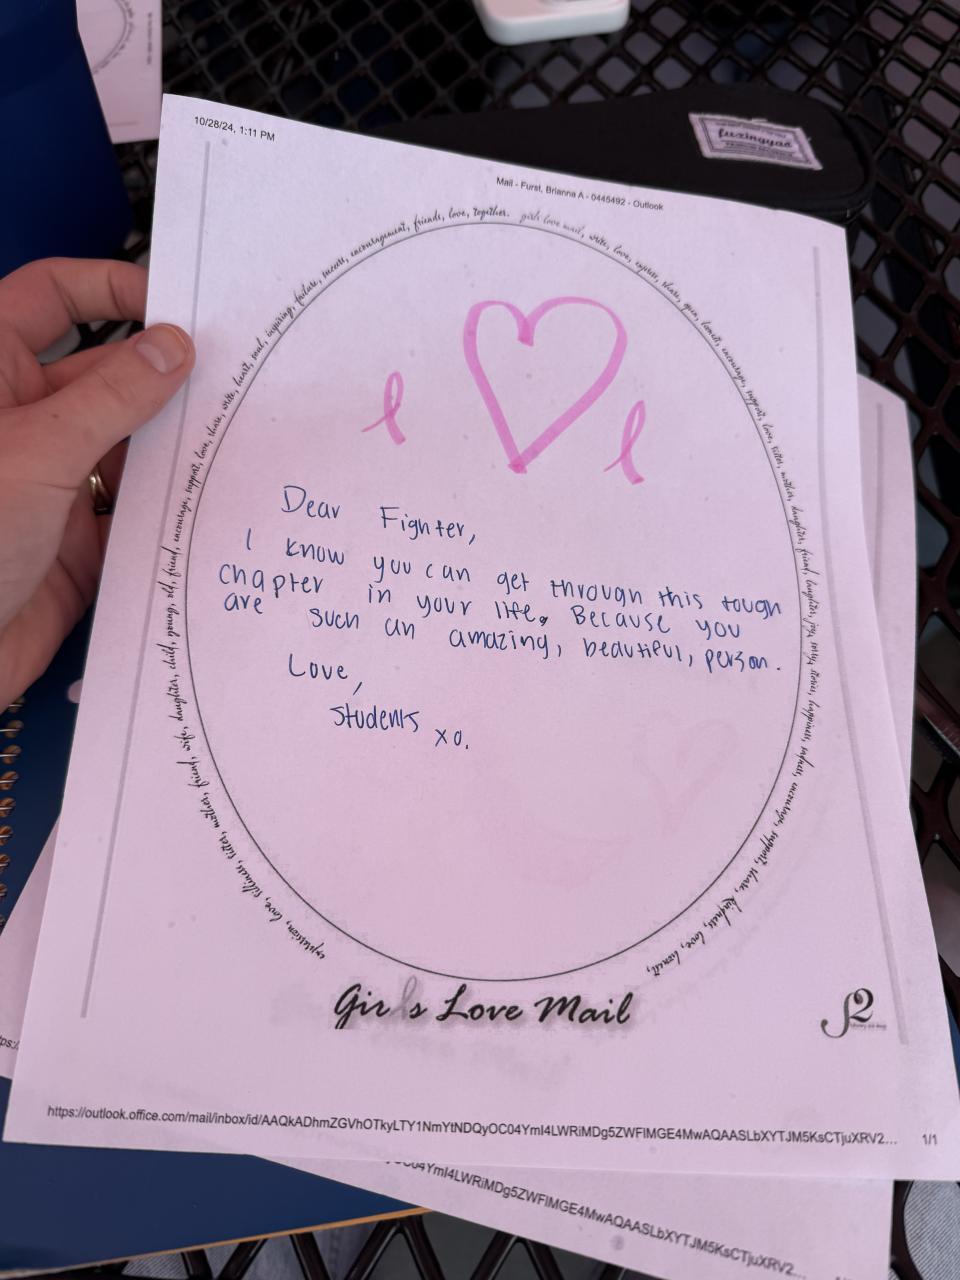 10/28/24, 1:11 PM
Mail - Furst, Brianna A - 0445492 - Outlook
fuzingyao
expression, love, silliness, sister, mother, friend, wife, daughter, child, young, old, friend, encourage, support, love, share, write, heart, soul, inspiring, failure, success, encouragement, friends, love, together. girls love mail, write, love, express, share, open, honest, encourage, support, love, sister, mother, daughter, friend, laughter, joy, stories, happiness, encourage, support, share, kindness, love, honest,
Dear Fighter,
I know you can get through this tough
chapter in your life. Because you
are such an amazing, beautiful, person.
Love,
Students xo.
Girls Love Mail
https://outlook.office.com/mail/inbox/id/AAQkADhmZGVhOTkyLTY1NmYtNDQyOC04YmI4LWRiMDg5ZWFlMGE4MwAQAASLbXYTJM5KsCTjuXRV2... 1/1
04YmI4LWRiMDg5ZWFlMGE4MwAQAASLbXYTJM5KsCTjuXRV2...